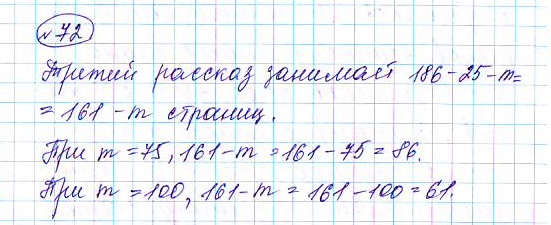 № 72
Третий рассказ занимает 186-25-m=
= 161 - m страниц.
При m = 75, 161-m = 161-75 = 86.
При m = 100, 161-m = 161-100 = 61.